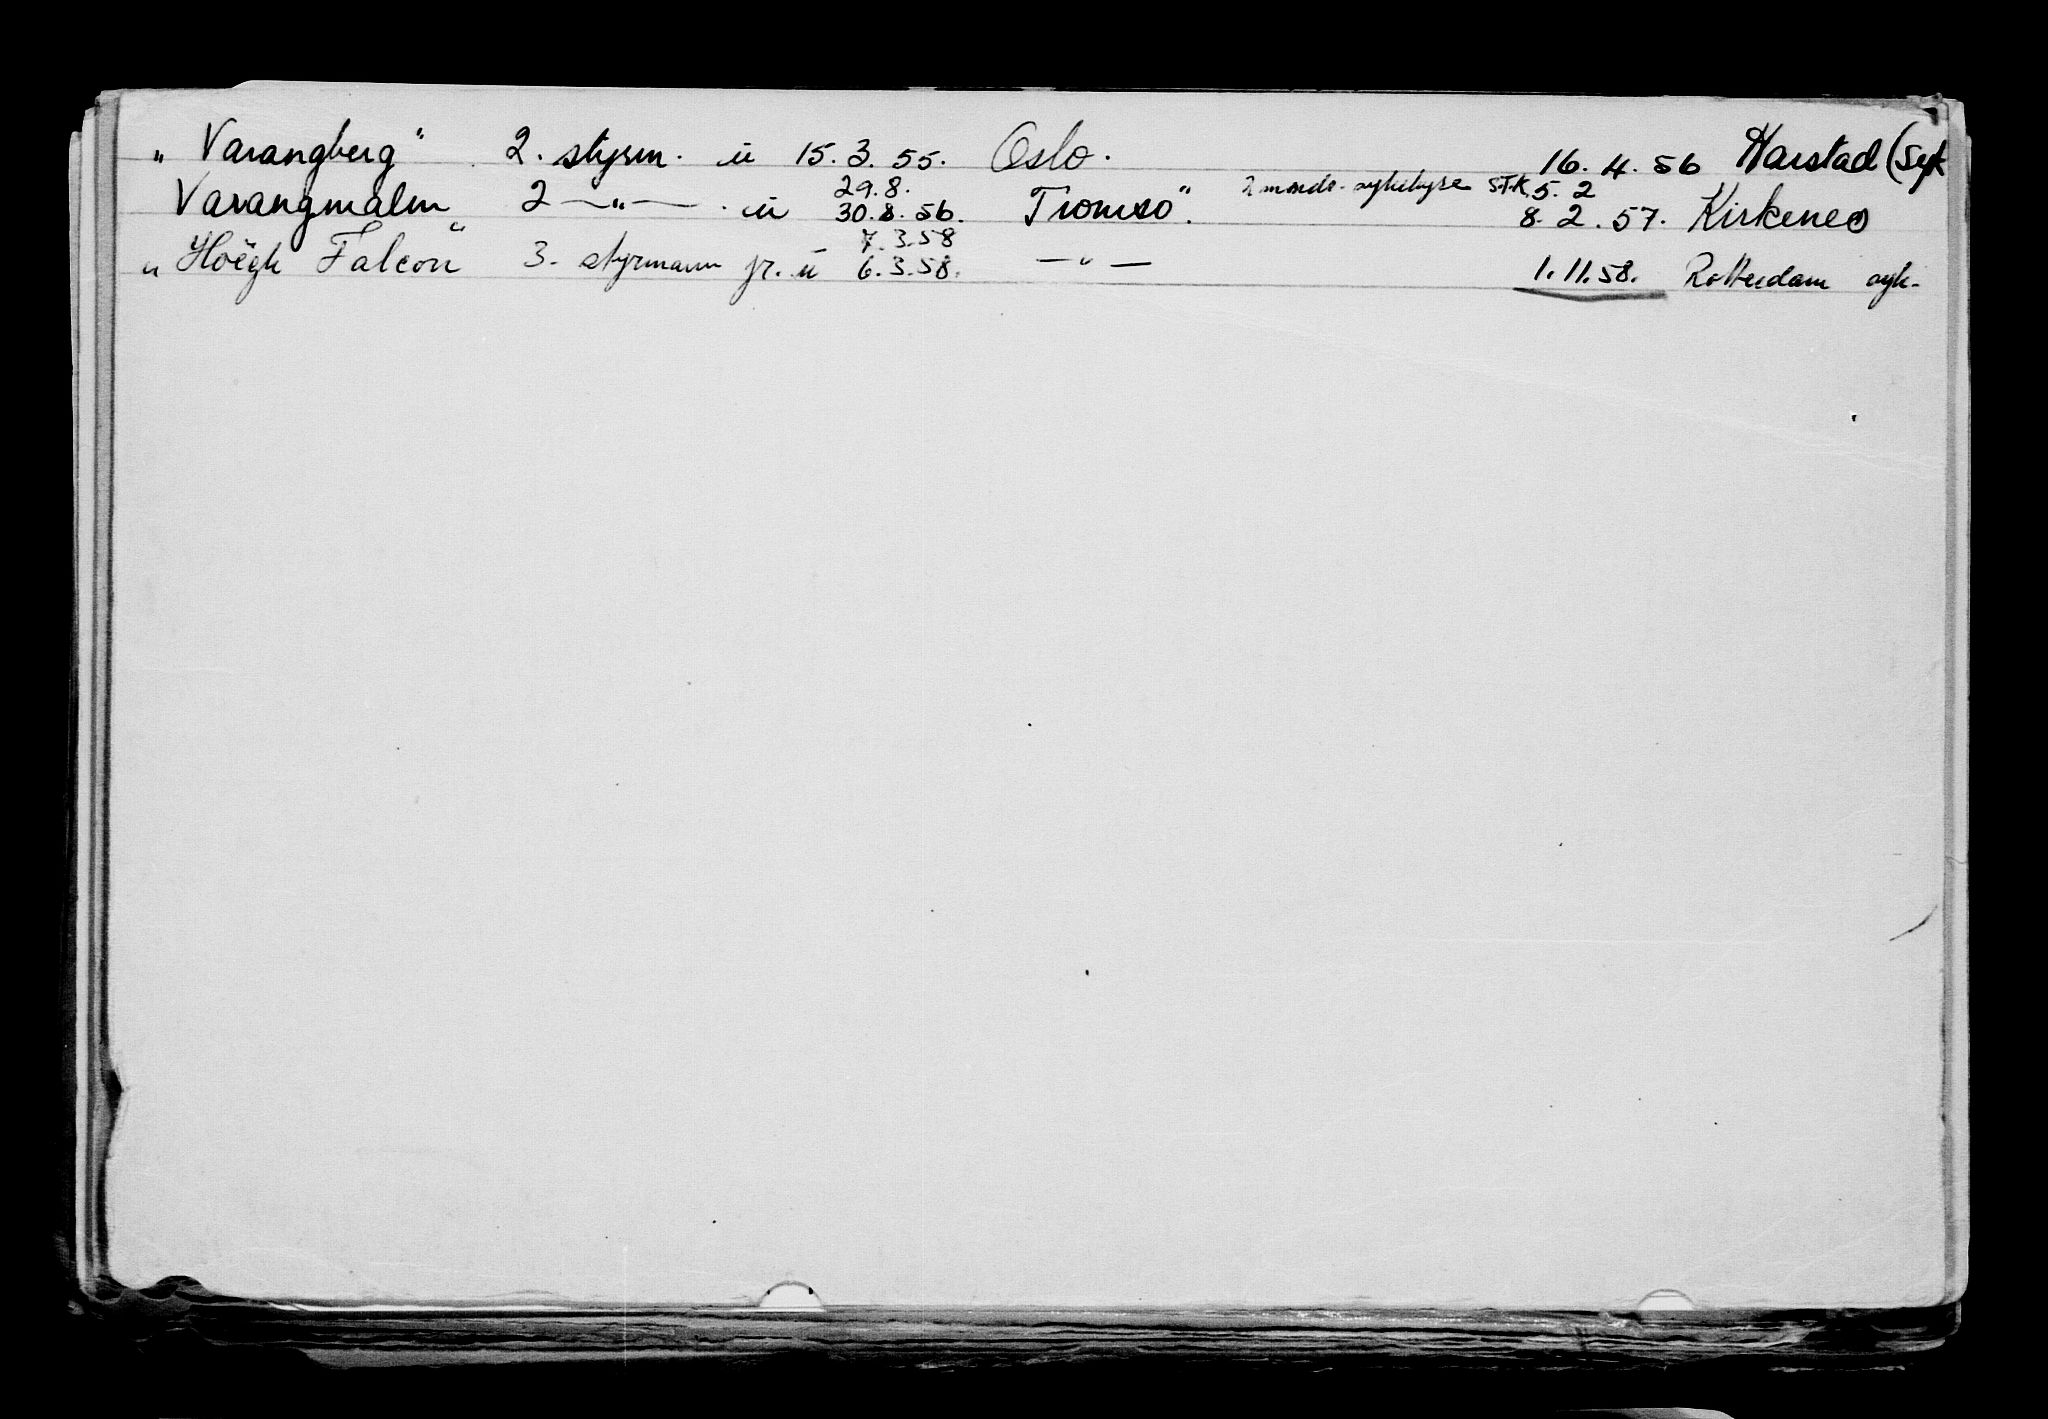 „ Varangberg" 2. styrm. u 15.3.55. Oslo. 16.4.56 Harstad (syk
29.8. 2 mnds. sykehyre S.T.K. 5.2
Varangmalm 2 —„— . u 30.8.56. Tromsø". 8.2.57. Kirkenes
7.3.58
„ Höegh Falcon" 3. styrmann jr. u 6.3.58. —„— 1.11.58. Rotterdam syk.